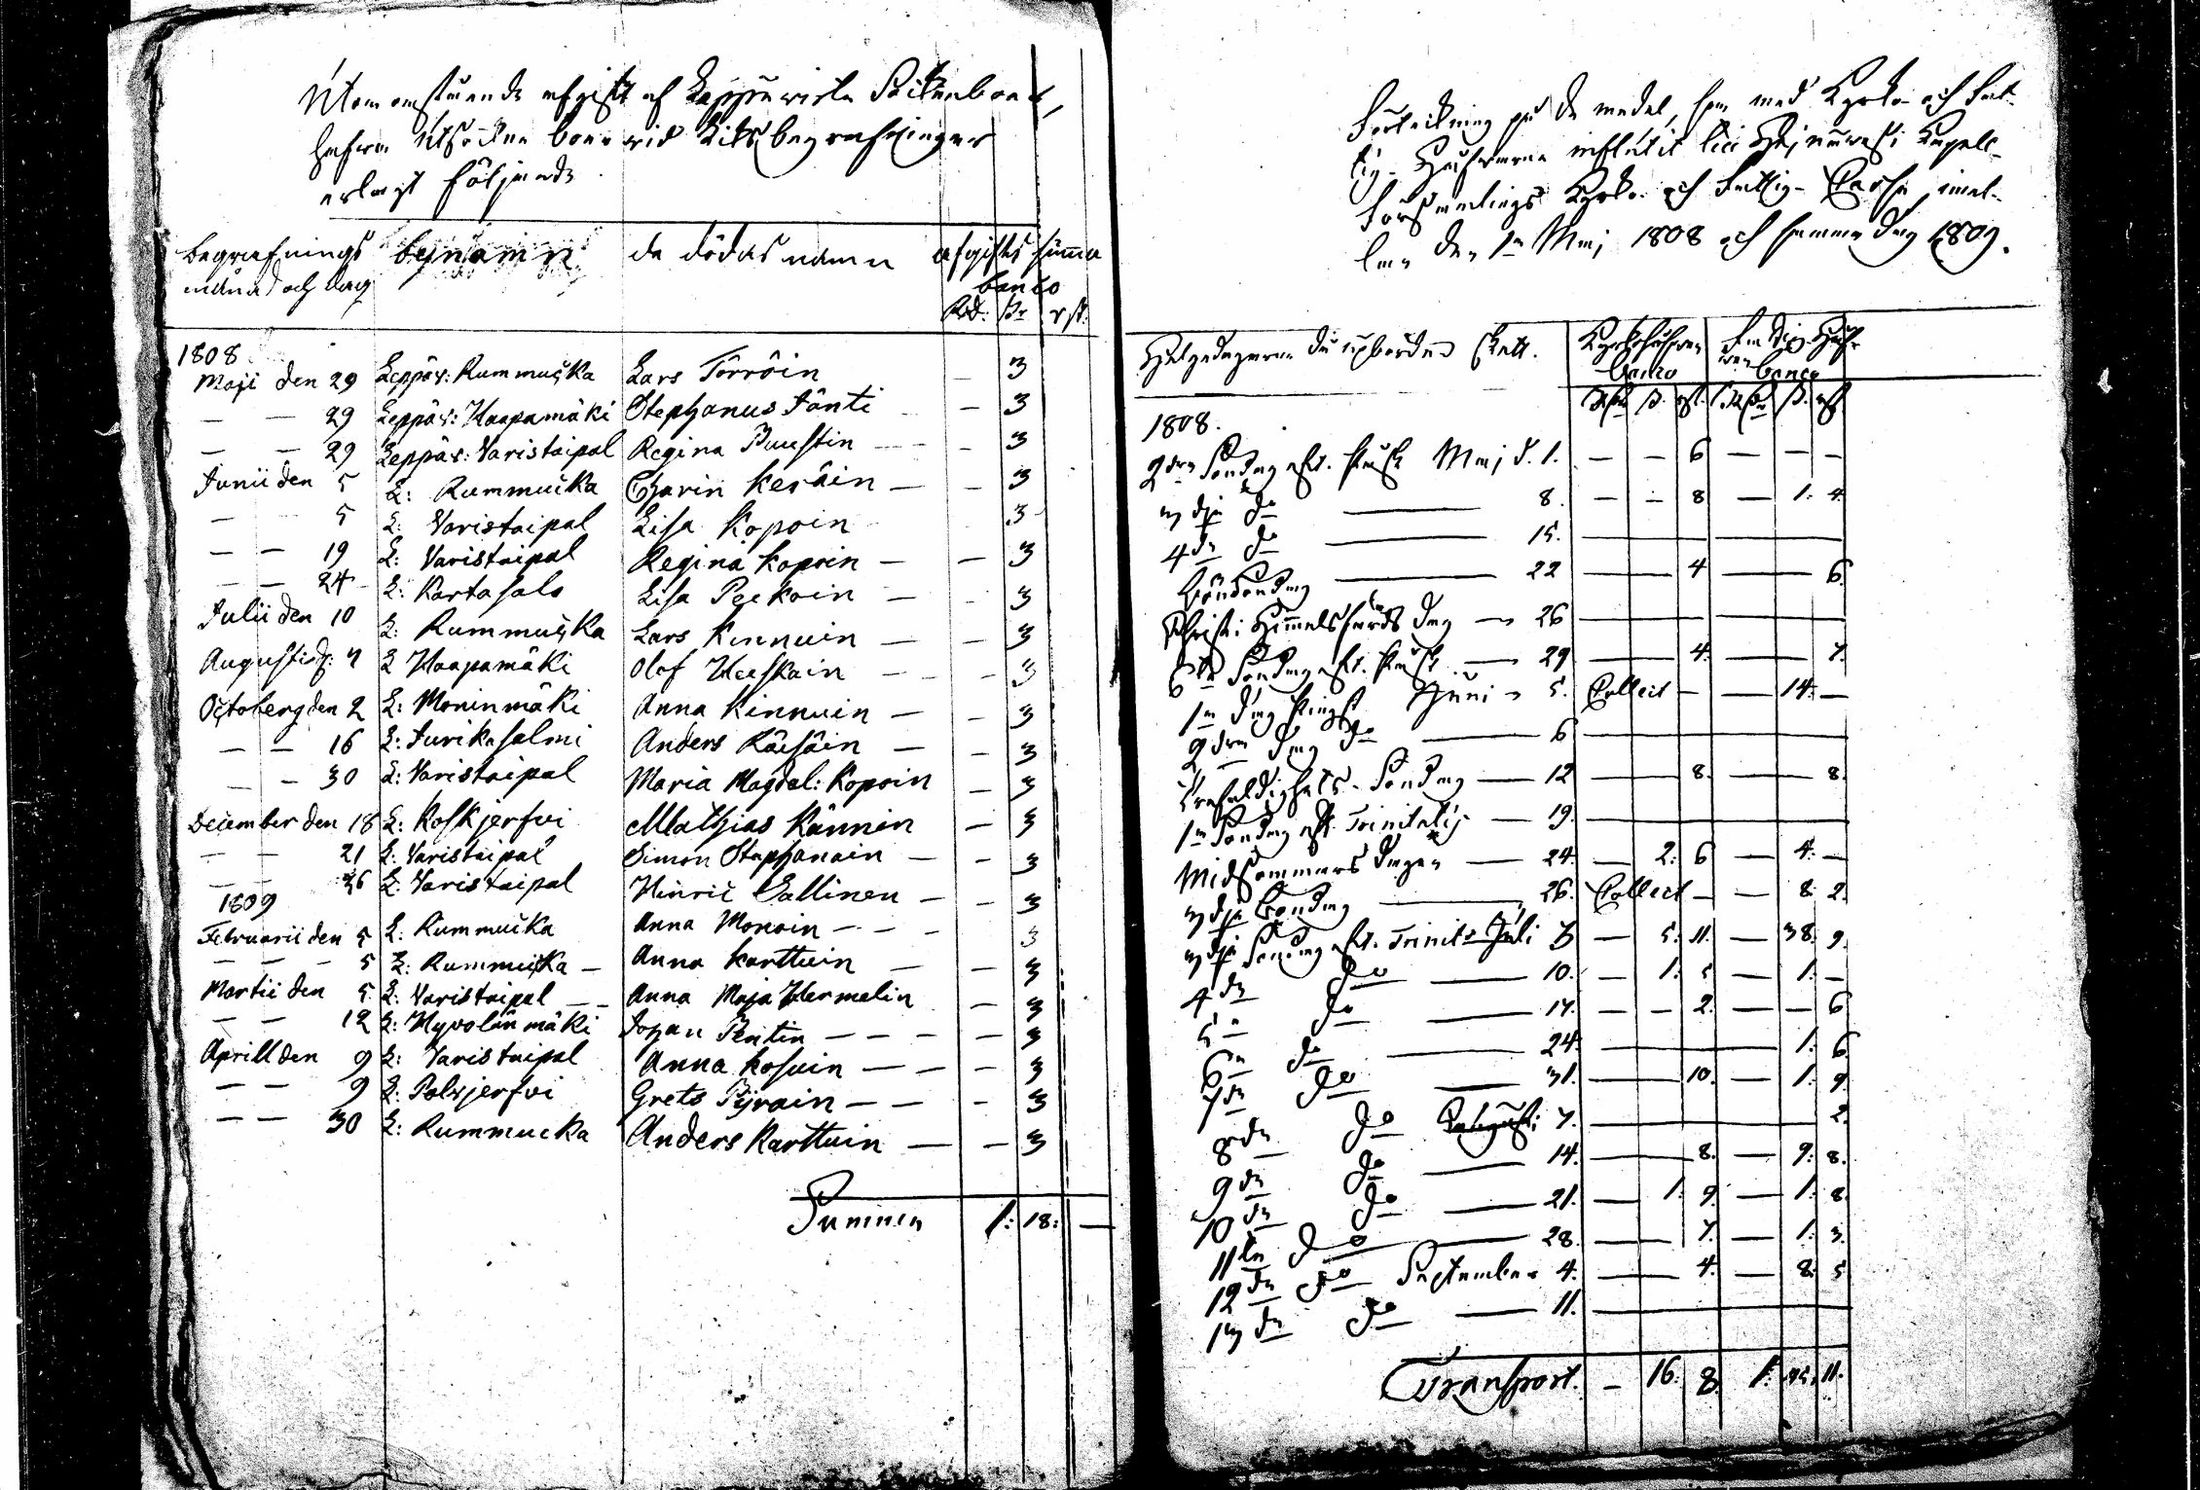 Utom omstående afgift af Leppävirta Socknboer,
hafva Utsockne boer vid Liks begrafningar
erlagt följande
begrafnings bynamn de dödas namn afgifts summa
månad och dag banco
Rd: sk rst:
1808
Maji den 29 Leppäv: Rummucka Lars Törröin — 3
— — 29 Leppäv: Haapamäki Stephanus Jänti — 3
— — 29 Leppäv: Varistaipal Regina Puustin — 3
Junii den 5 L: Rummucka Charin Kesäin — — 3
— 5 L: Varistaipal Lisa Kopoin 3
— — 19 L: Varistaipal Regina Kopoin — — 3
— — 24 L: Kartasalo Lisa Peekoin — — 3
Julii den 10 L: Rummucka Lars Kinnuin — — 3
Augusti d: 7 L Haapamäki Olof Heiskain — — 3
October den 2 L: Moninmäki Anna Kinnuin — — 3
— — 16 L: Jurikasalmi Anders Räisäin — — 3
— — 30 L: Varistaipal Maria Magdal: Kopoin — 3
December den 18 L: Koskjerfvi Mathias Kännin — 3
— — 21 L: Varistaipal Simon Staphanain — — 3
— — 26 L: Varistaipal Hinric Sallinen — — 3
1809
Februarii den 5 L: Rummucka Anna Monoin — — — 3
— — — 5 L: Rummucka — Anna Karttuin — — 3
Martii den 5 L: Varistaipal — — Anna Maja Hermelin — 3
— — 12 L: Hyvolänmäki Johan Pentin — — — — 3
Aprill den 9 L: Varistaipal Anna Kosuin — — — 3
— — 9 L: Polvjerfvi Greta Pyrain — — — 3
— — 30 L: Rummucka Anders Karttuin — — 3
Summa 1: 18: —
Förteckning på de medel, som med Kyrko- och Fat-
tig-Håfvarna influtit till Capell-
Församlings Kyrko- och Fattig-Cassa, imel-
lan den 1a Maj 1808 och samma dag 1809.
Helgedagarne då upbörden skett. Kyrkohåfven Fattig Håf-
banco ven banco
1808.
2dra Söndag eft. Påsk Maj d. 1. — — 6 — — —
3dje do — 8. — — 8 — 1: 4.
4de do — 15. — —
Böndag — 22 — 4 — 6.
Christi Himmelsfärds Dag — 26 —
6te Söndag eft. Påsk — 29 — 4. — 7.
1a dag Pingst Junii 5. Collect — — 14: —
2dra dag do — 6 —
Trefaldighets-Söndag — 12 — 8. — 8.
1a Söndag eft. Trinitatis — 19. —
Midsommars dagen — 24. — 2: 6 — 4. —
3dje Böndag — 26. Collect — — 8: 2.
3dje Söndag eft. Trinit. Juli 3 — 5: 11. — 38: 9.
4de do — 10. — 1: 5 — 1: —
5te do — 17. — — 2. — — 6
6te do — 24. — 1: 6
7de do — 31. — 10. — 1: 9
8de do Augusti 7. — 2.
9de do — 14. — 8. — 9: 8.
10de do — 21. — 1: 9. — 1: 8
11te do — 28. — 7. — 1: 3.
12te do September 4. — 4. — 8: 5
13de do — 11. —
Transport. — 16: 8. 1: 11.